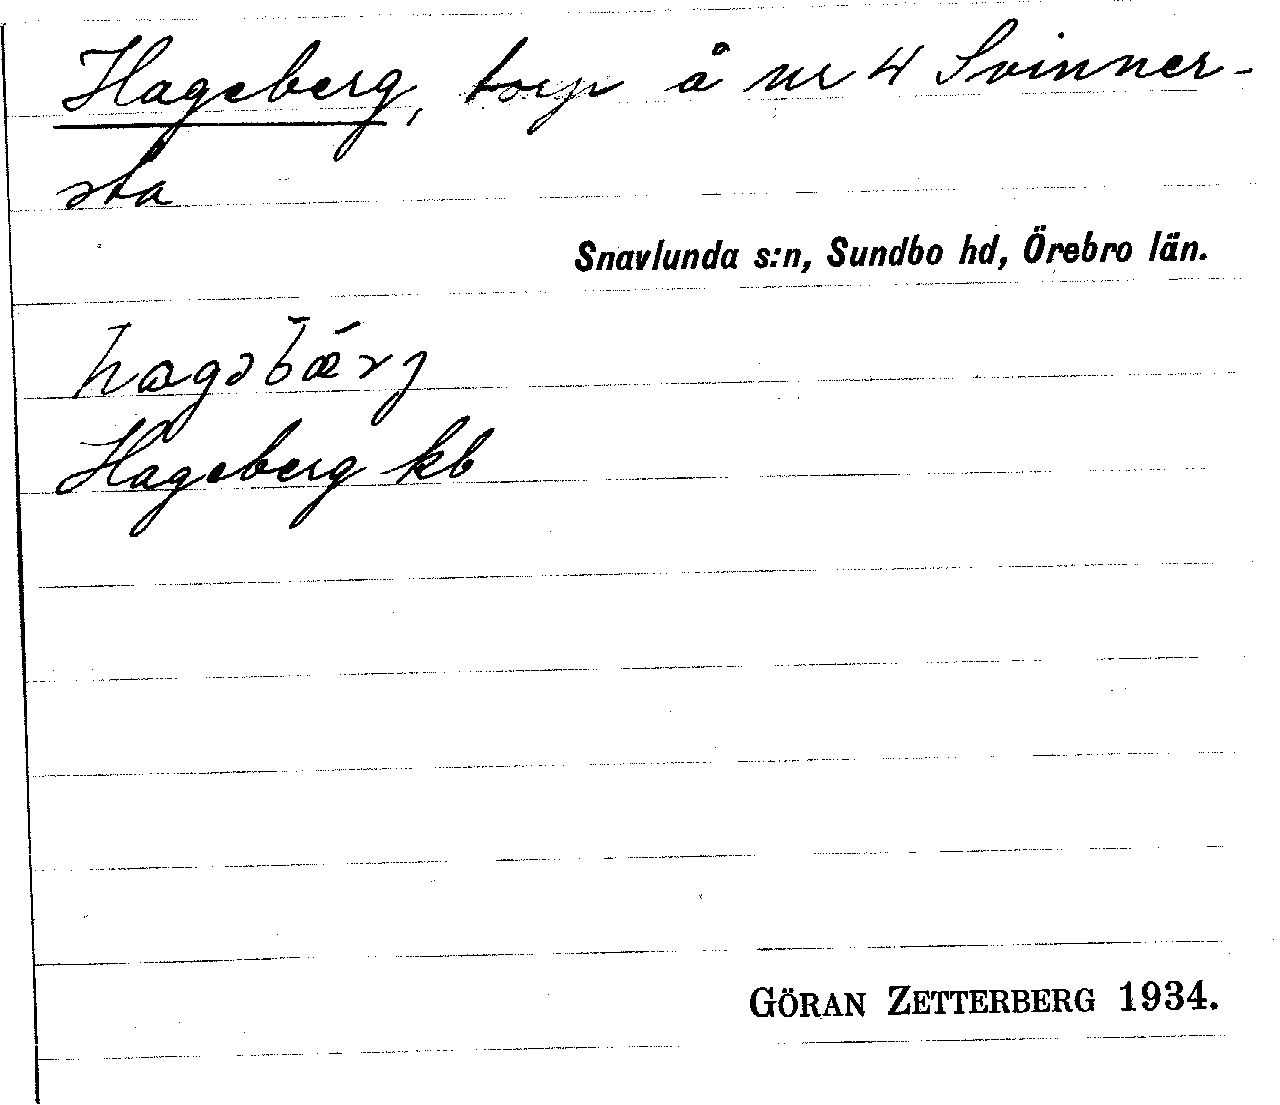 Hageberg, torp å nr 4 Svinner-
sta
Snavlunda s:n, Sundbo hd, Örebro län.
hagəbærj
Hageberg kb
GÖRAN ZETTERBERG 1934.